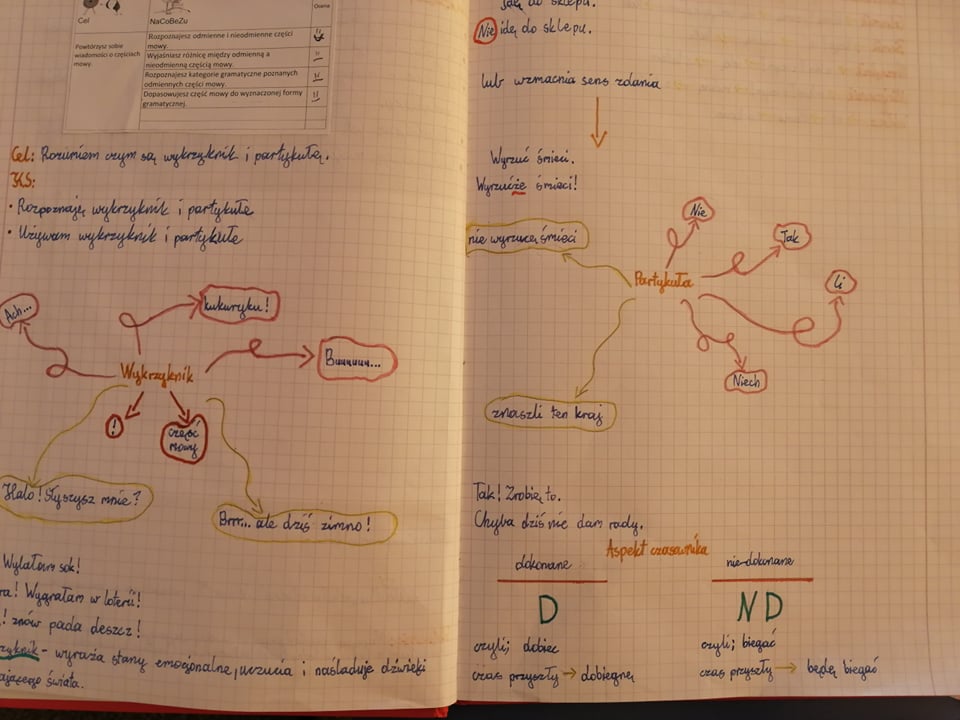 Cel
NaCoBeZu
Ocena
Powtórzysz sobie
wiadomości o częściach
mowy.
Rozpoznajesz odmienne i nieodmienne części
mowy.
Wyjaśniasz różnicę między odmienną a
nieodmienną częścią mowy.
Rozpoznajesz kategorie gramatyczne poznanych
odmiennych części mowy.
Dopasowujesz część mowy do wyznaczonej formy
gramatycznej.
Cel: Rozumiem czym są wykrzyknik i partykułę.
• Rozpoznaję wykrzyknik i partykułę
• Używam wykrzyknik i partykułę
Ach...
kukuryku!
Buuuuuu...
Wykrzyknik
!
część
mowy
Halo! Słyszysz mnie?
Brrr... ale dziś zimno!
Wylałam sok!
Wygrałam w loterii!
! znów pada deszcz!
- wyraża stany emocjonalne, uczucia i naśladuje dźwięki
świata.
Idę do sklepu.
Nie idę do sklepu.
lub wzmacnia sens zdania
Wyrzuć śmieci.
Wyrzućże śmieci!
Nie
Tak
nie wyrzucę śmieci
Partykuła
Li
Niech
znaszli ten kraj
Tak! Zrobię to.
Chyba dziś nie dam rady.
Aspekt czasownika
dokonane
nie-dokonane
D
ND
czyli; dobiec
czyli; biegać
czas przyszły → dobiegnę
czas przyszły → będę biegać